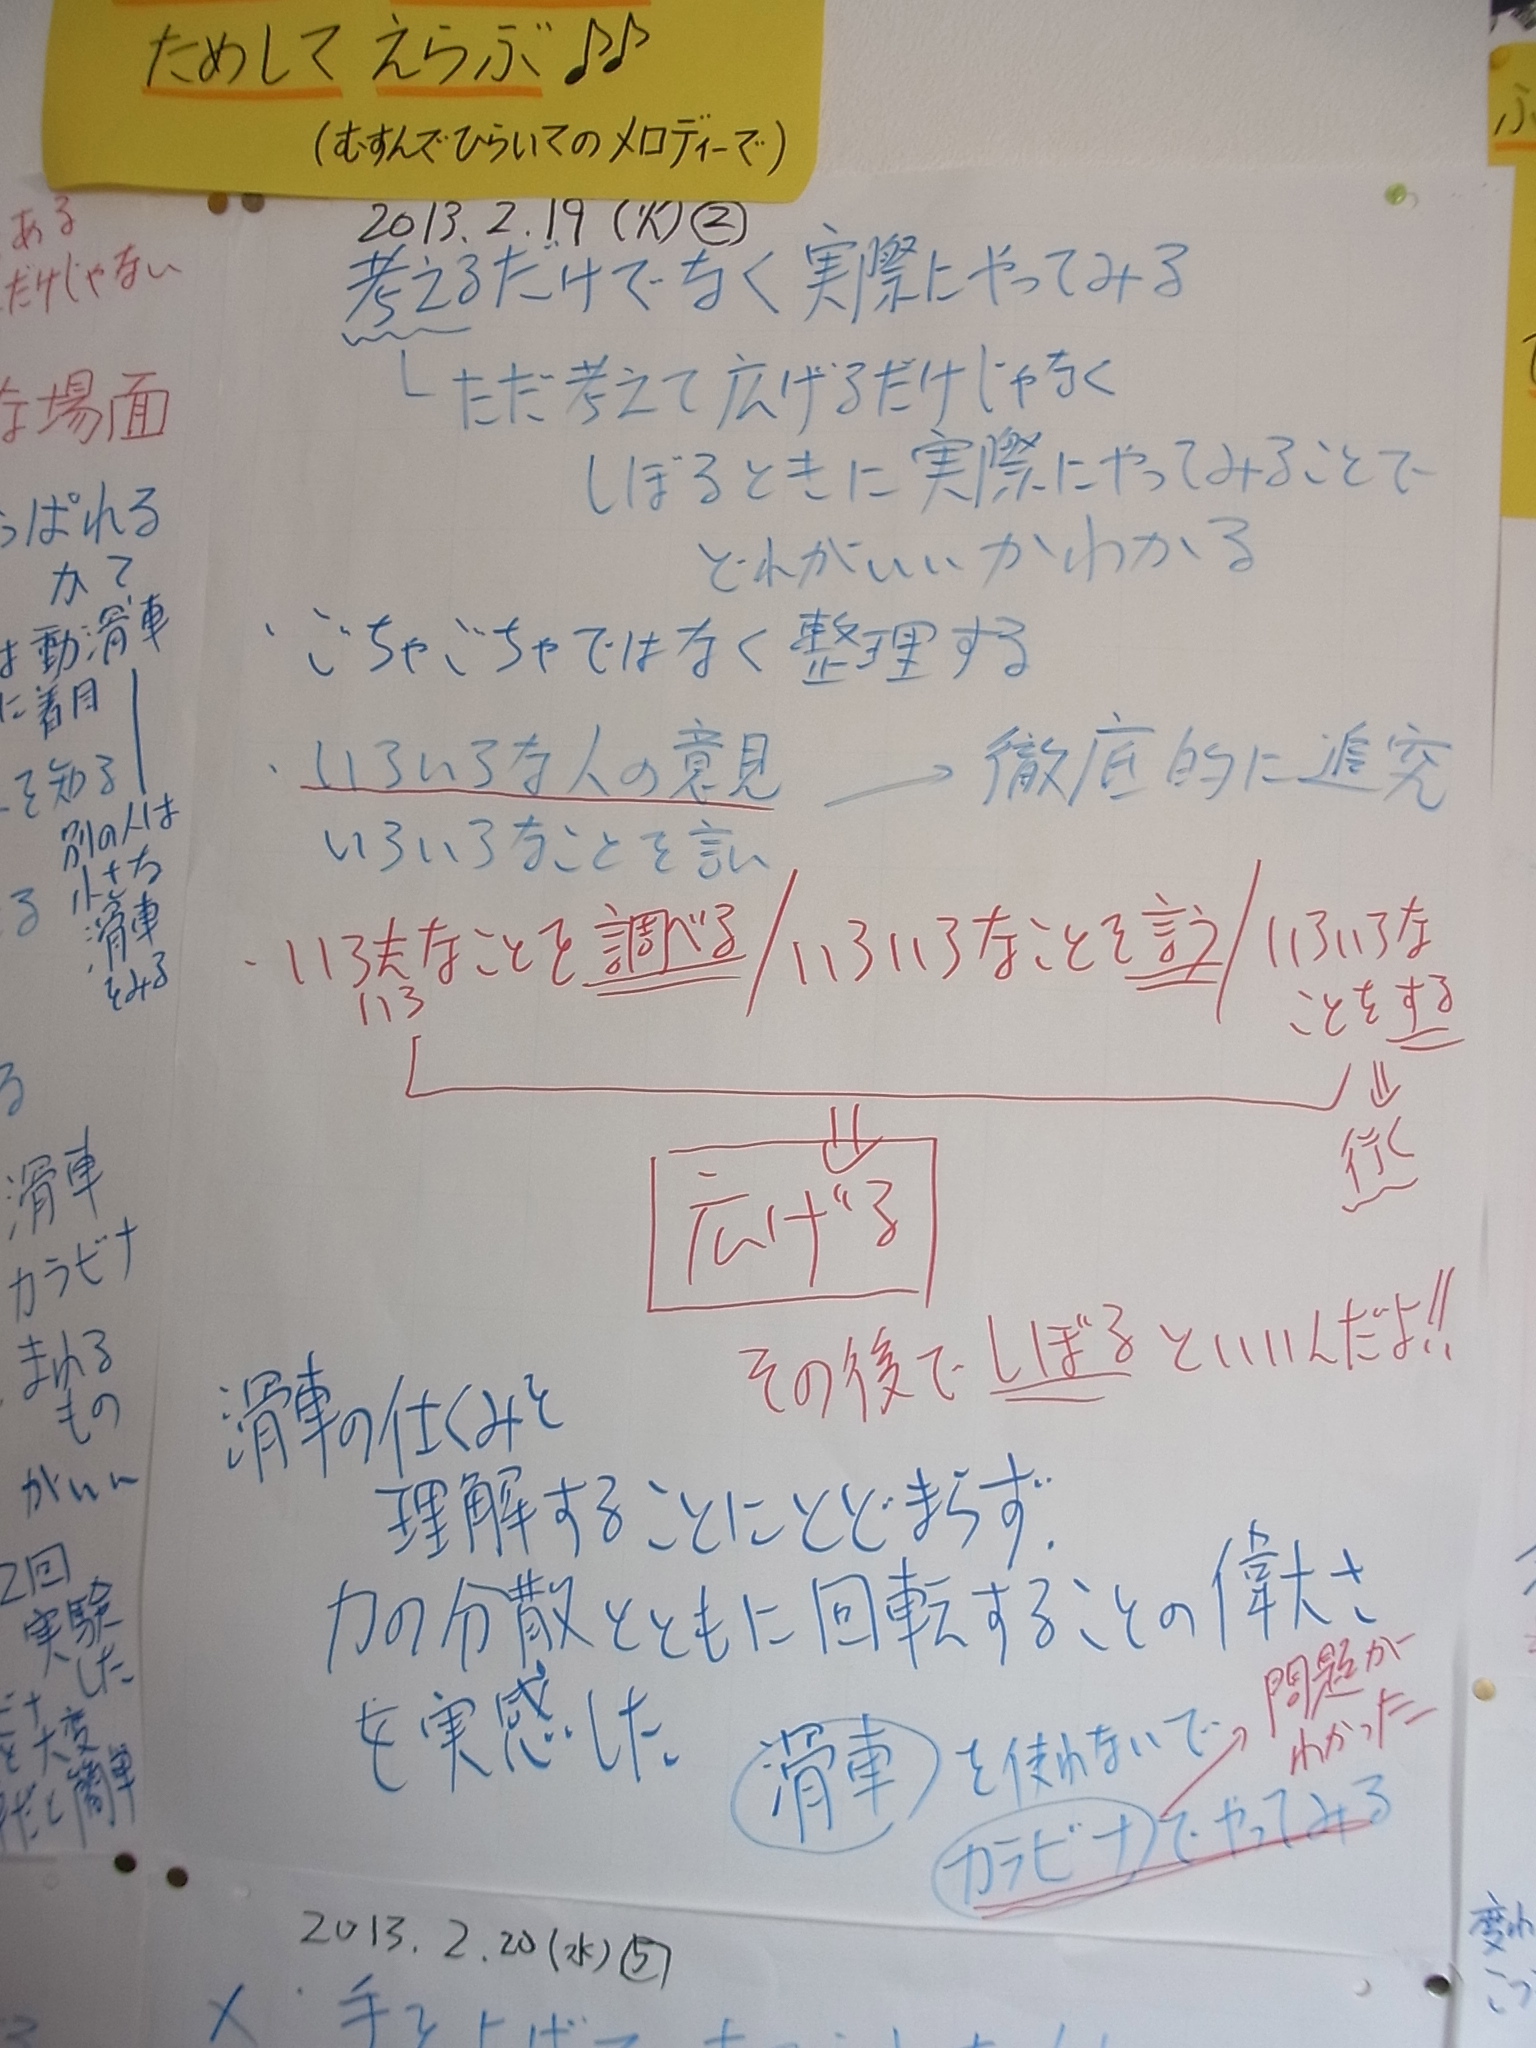 ためして えらぶ♪♪
(むすんでひらいてのメロディーで)
2013.2.19(火)②
考えるだけでなく実際にやってみる
ただ考えて広げるだけじゃなく
しぼるときに実際にやってみることで
どれがいいかわかる
・ごちゃごちゃではなく整理する
・いろいろな人の意見 → 徹底的に追究
いろいろなことを言い
・いろ なことを調べる/いろいろなことを言う/いろいろな
いろ
ことをする
⇓
行く
⇓
広げる
その後でしぼるといいんだよ!!
滑車の仕くみを
理解することにとどまらず、
力の分散とともに回転することの偉大さ
を実感した
滑車を使わないで
カラビナでやってみる
→問題が
わかった
2013.2.20(水)⑤
ある
だけじゃない
な場面
っぱれる
かて
は動滑車
に着目
を知る
別の人は
小さな
滑車
をみる
る
る
滑車
カラビナ
まわる
もの
がいい
2回
実験
した
と大変
だと簡単